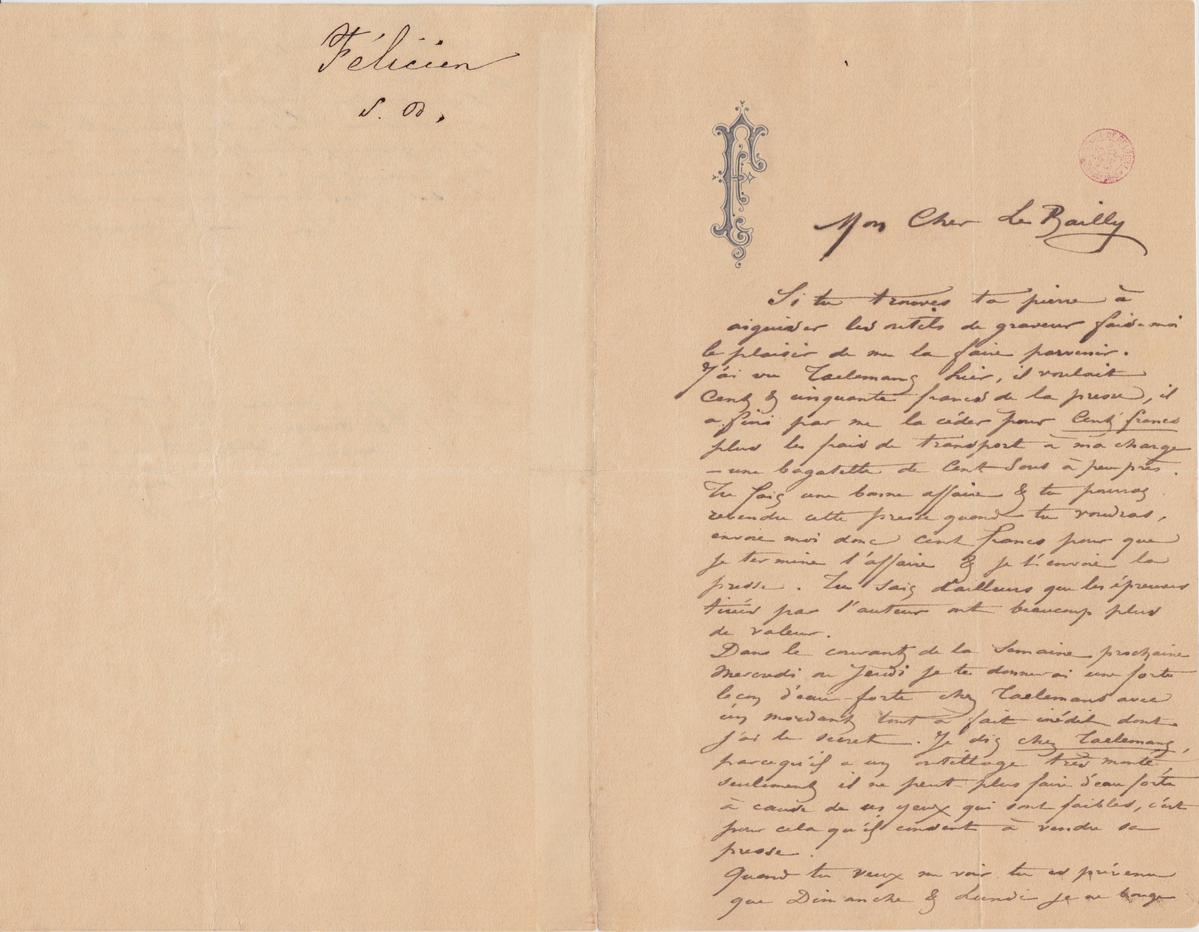 Félicien
s. d.
F
Mon Cher Le Bailly
Si tu trouves ta pierre à
aiguiser les outils de graveur fais-moi
le plaisir de me la faire parvenir.
J'ai vu Taelemans hier, il voulait
Cent & cinquante francs de la presse, il
a fini par me la céder pour Cent francs
plus les frais de transport à ma charge
– une bagatelle de Cent Sous à peu près.
Tu fais une bonne affaire & tu pourras
revendre cette presse quand tu voudras,
envoie moi donc cent francs pour que
je termine l'affaire & je t'envoie la
presse. Tu sais d'ailleurs que les épreuves
tirées par l'auteur ont beaucoup plus
de valeur.
Dans le courant de la Semaine prochaine
Mercredi ou Jeudi je te donnerai une forte
leçon d'eau-forte chez Taelemans avec
un mordant tout à fait inédit dont
j'ai le secret. Je dis chez Taelemans,
parcequ'il a un outillage très monté,
seulement il ne peut plus faire d'eau forte
à cause de ses yeux qui sont faibles, c'est
pour cela qu'il consent à vendre sa
presse.
Quand tu veux me voir tu es prévenu
que Dimanche & Lundi je ne bouge